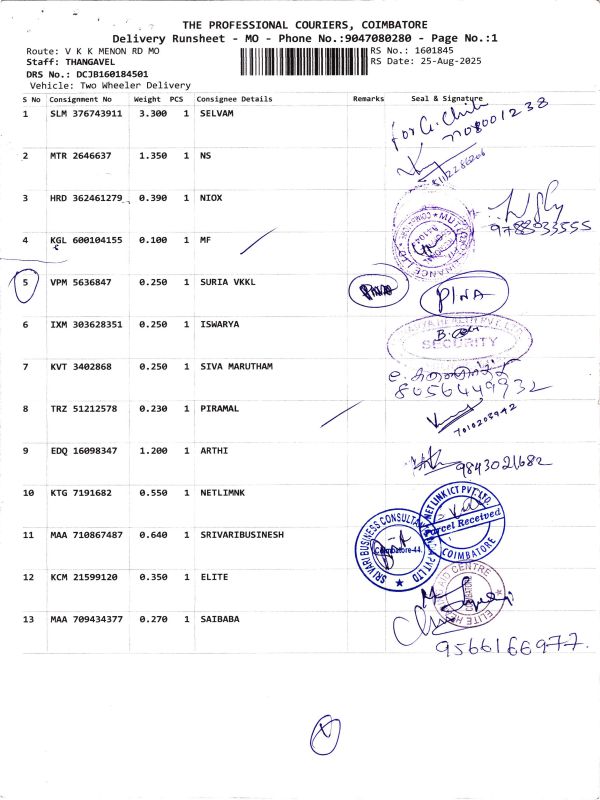 THE PROFESSIONAL COURIERS, COIMBATORE
Delivery Runsheet - MO - Phone No.:9047080280 - Page No.:1
Route: V K K MENON RD MO RS No.: 1601845
Staff: THANGAVEL RS Date: 25-Aug-2025
DRS No.: DCJB160184501
Vehicle: Two Wheeler Delivery
S No Consignment No Weight PCS Consignee Details Remarks Seal & Signature
1 SLM 376743911 3.300 1 SELVAM
7708001238
2 MTR 2646637 1.350 1 NS
3 HRD 362461279 0.390 1 NIOX
9788033555
4 KGL 600104155 0.100 1 MF
5 VPM 5636847 0.250 1 SURIA VKKL PINA
6 IXM 303628351 0.250 1 ISWARYA
SECURITY
7 KVT 3402868 0.250 1 SIVA MARUTHAM
8056449932
8 TRZ 51212578 0.230 1 PIRAMAL
7010203942
9 EDQ 16098347 1.200 1 ARTHI
9843021682
10 KTG 7191682 0.550 1 NETLIMNK
NET LINK ICT PVT. LTD.
Parcel Received
COIMBATORE
11 MAA 710867487 0.640 1 SRIVARIBUSINESH
SRIVARI BUSINESS CONSULTANCY PVT LTD
Coimbatore-44
12 KCM 21599120 0.350 1 ELITE
13 MAA 709434377 0.270 1 SAIBABA
9566166977.